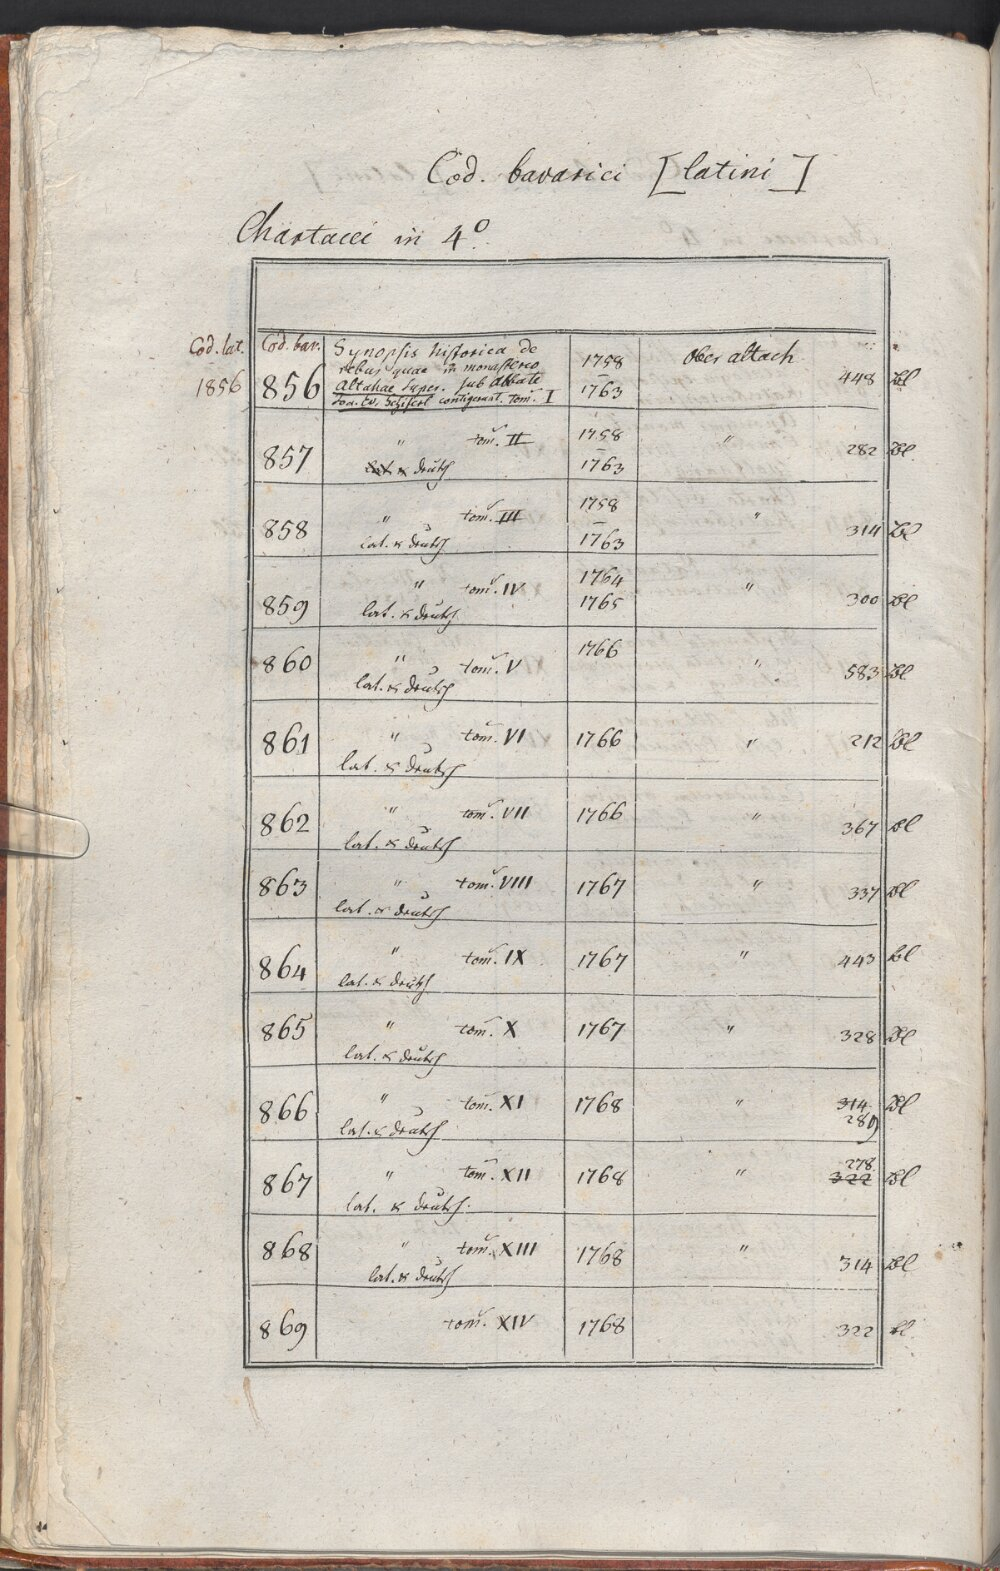 Cod. bavarici [latini]
Chartacei in 4º.
Cod. lat. Cod. bav. Synopsis historica de
rebus quae in monasterio 1758 Ober altach
1856 856 Altahae Super. sub Abbate 1763 448 Bl
Joa. Ev. Schifert contigerunt. Tom. I
857 " tom. II 1758 – 1763 " 282 Bl.
lat. & deutsch
858 " tom. III 1758 – 1763 " 314 Bl
lat. & deutsch
859 " tom. IV 1764 1765 " 300 Bl
lat. & deutsch
860 " tom. V 1766 " 583 Bl
lat. & deutsch
861 " tom. VI 1766 " 212 Bl
lat. & deutsch
862 " tom. VII 1766 " 367 Bl
lat. & deutsch
863 " tom. VIII 1767 " 337 Bl
lat. & deutsch
864 " tom. IX 1767 " 443 Bl
lat. & deutsch
865 " tom. X 1767 " 328 Bl
lat. & deutsch
866 " tom. XI 1768 " 314 Bl
289
lat. & deutsch
278
867 " tom. XII 1768 " 322 Bl
lat. & deutsch.
868 " tom. XIII 1768 " 314 Bl
lat. & deutsch
869 tom. XIV 1768 322 Bl.